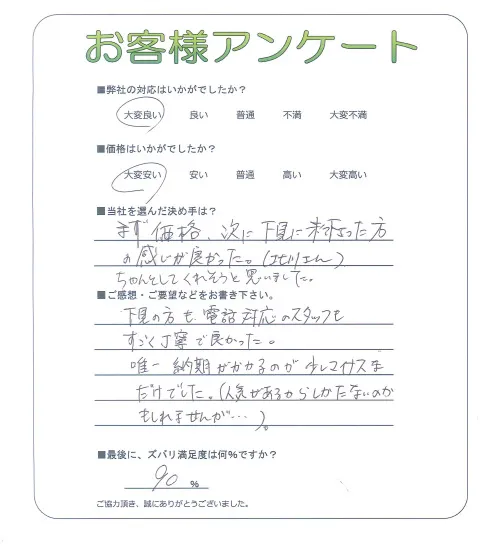 お客様アンケート
■弊社の対応はいかがでしたか？
大変良い 良い 普通 不満 大変不満
■価格はいかがでしたか？
大変安い 安い 普通 高い 大変高い
■当社を選んだ決め手は？
まず価格、次に下見に来て下さった方
の感じが良かった。(北川さん)
ちゃんとしてくれそうと思いました。
■ご感想・ご要望などをお書き下さい。
下見の方も電話対応のスタッフも
すごく丁寧で良かった。
唯一納期がかかるのが少しマイナスな
だけでした。(人気があるからしかたないのか
もしれませんが…)。
■最後に、ズバリ満足度は何%ですか？
90 %
ご協力頂き、誠にありがとうございました。